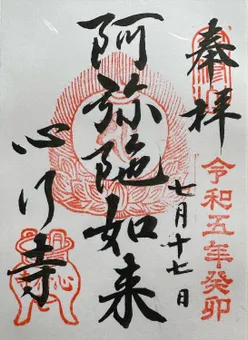 奉拝
令和五年癸卯
七月十七日
阿弥陀如来
心行寺